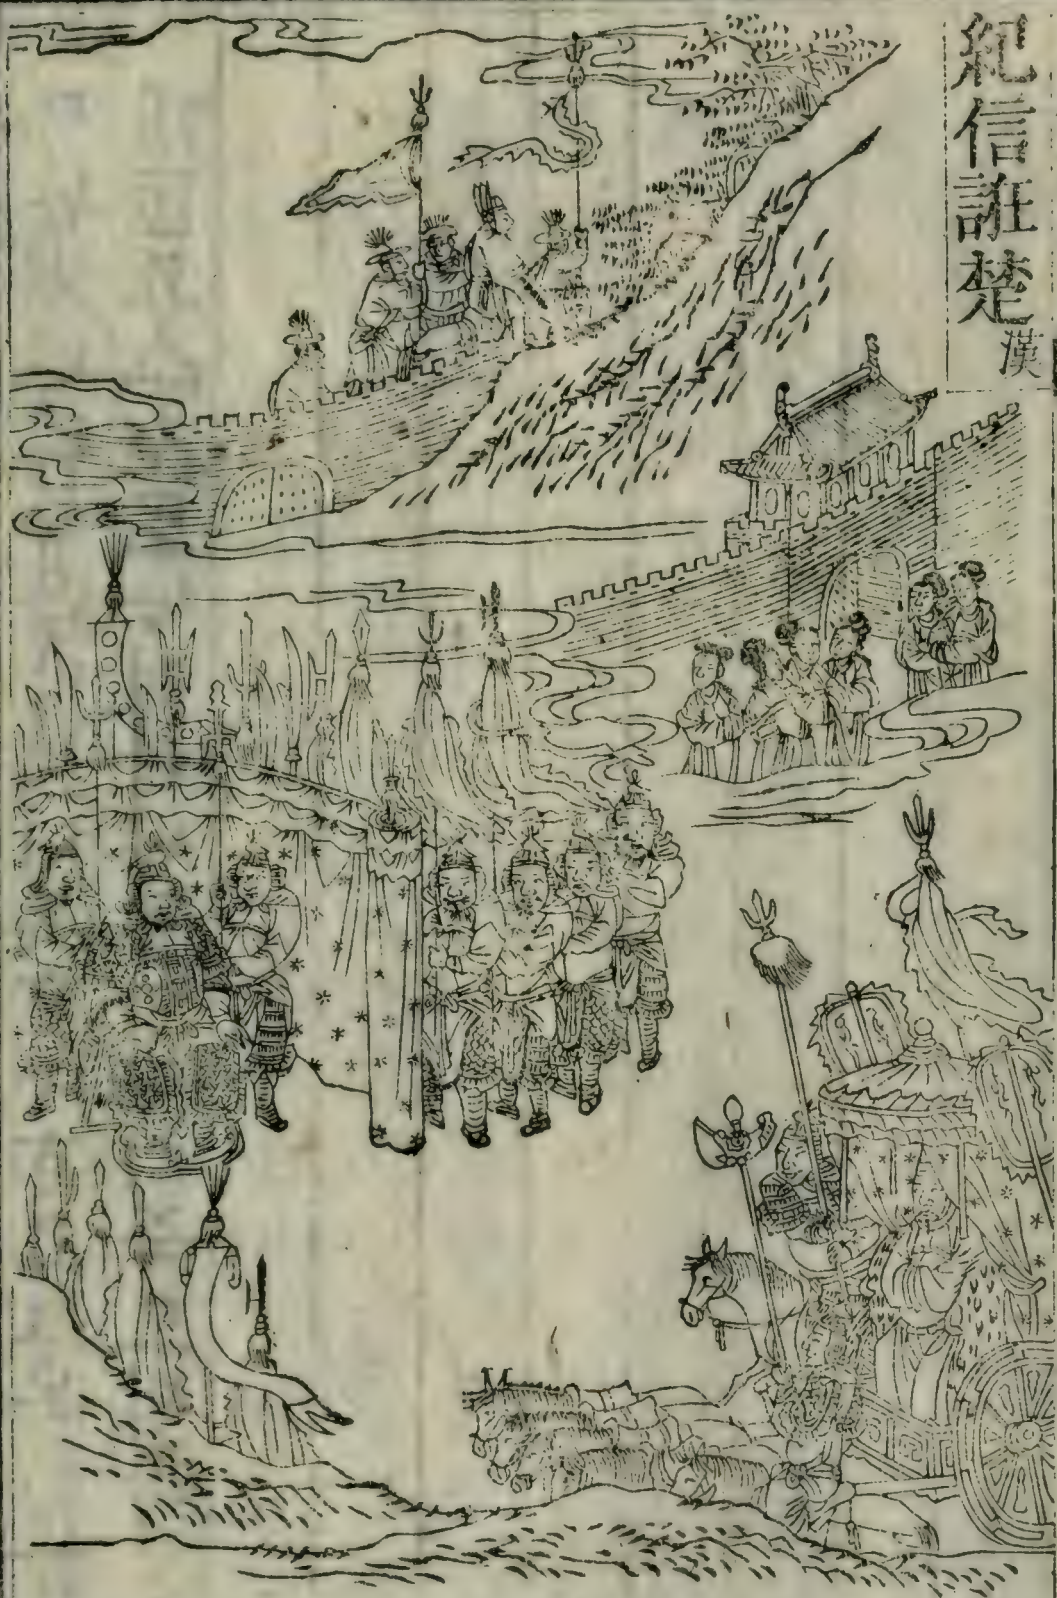 紀信誑楚
漢